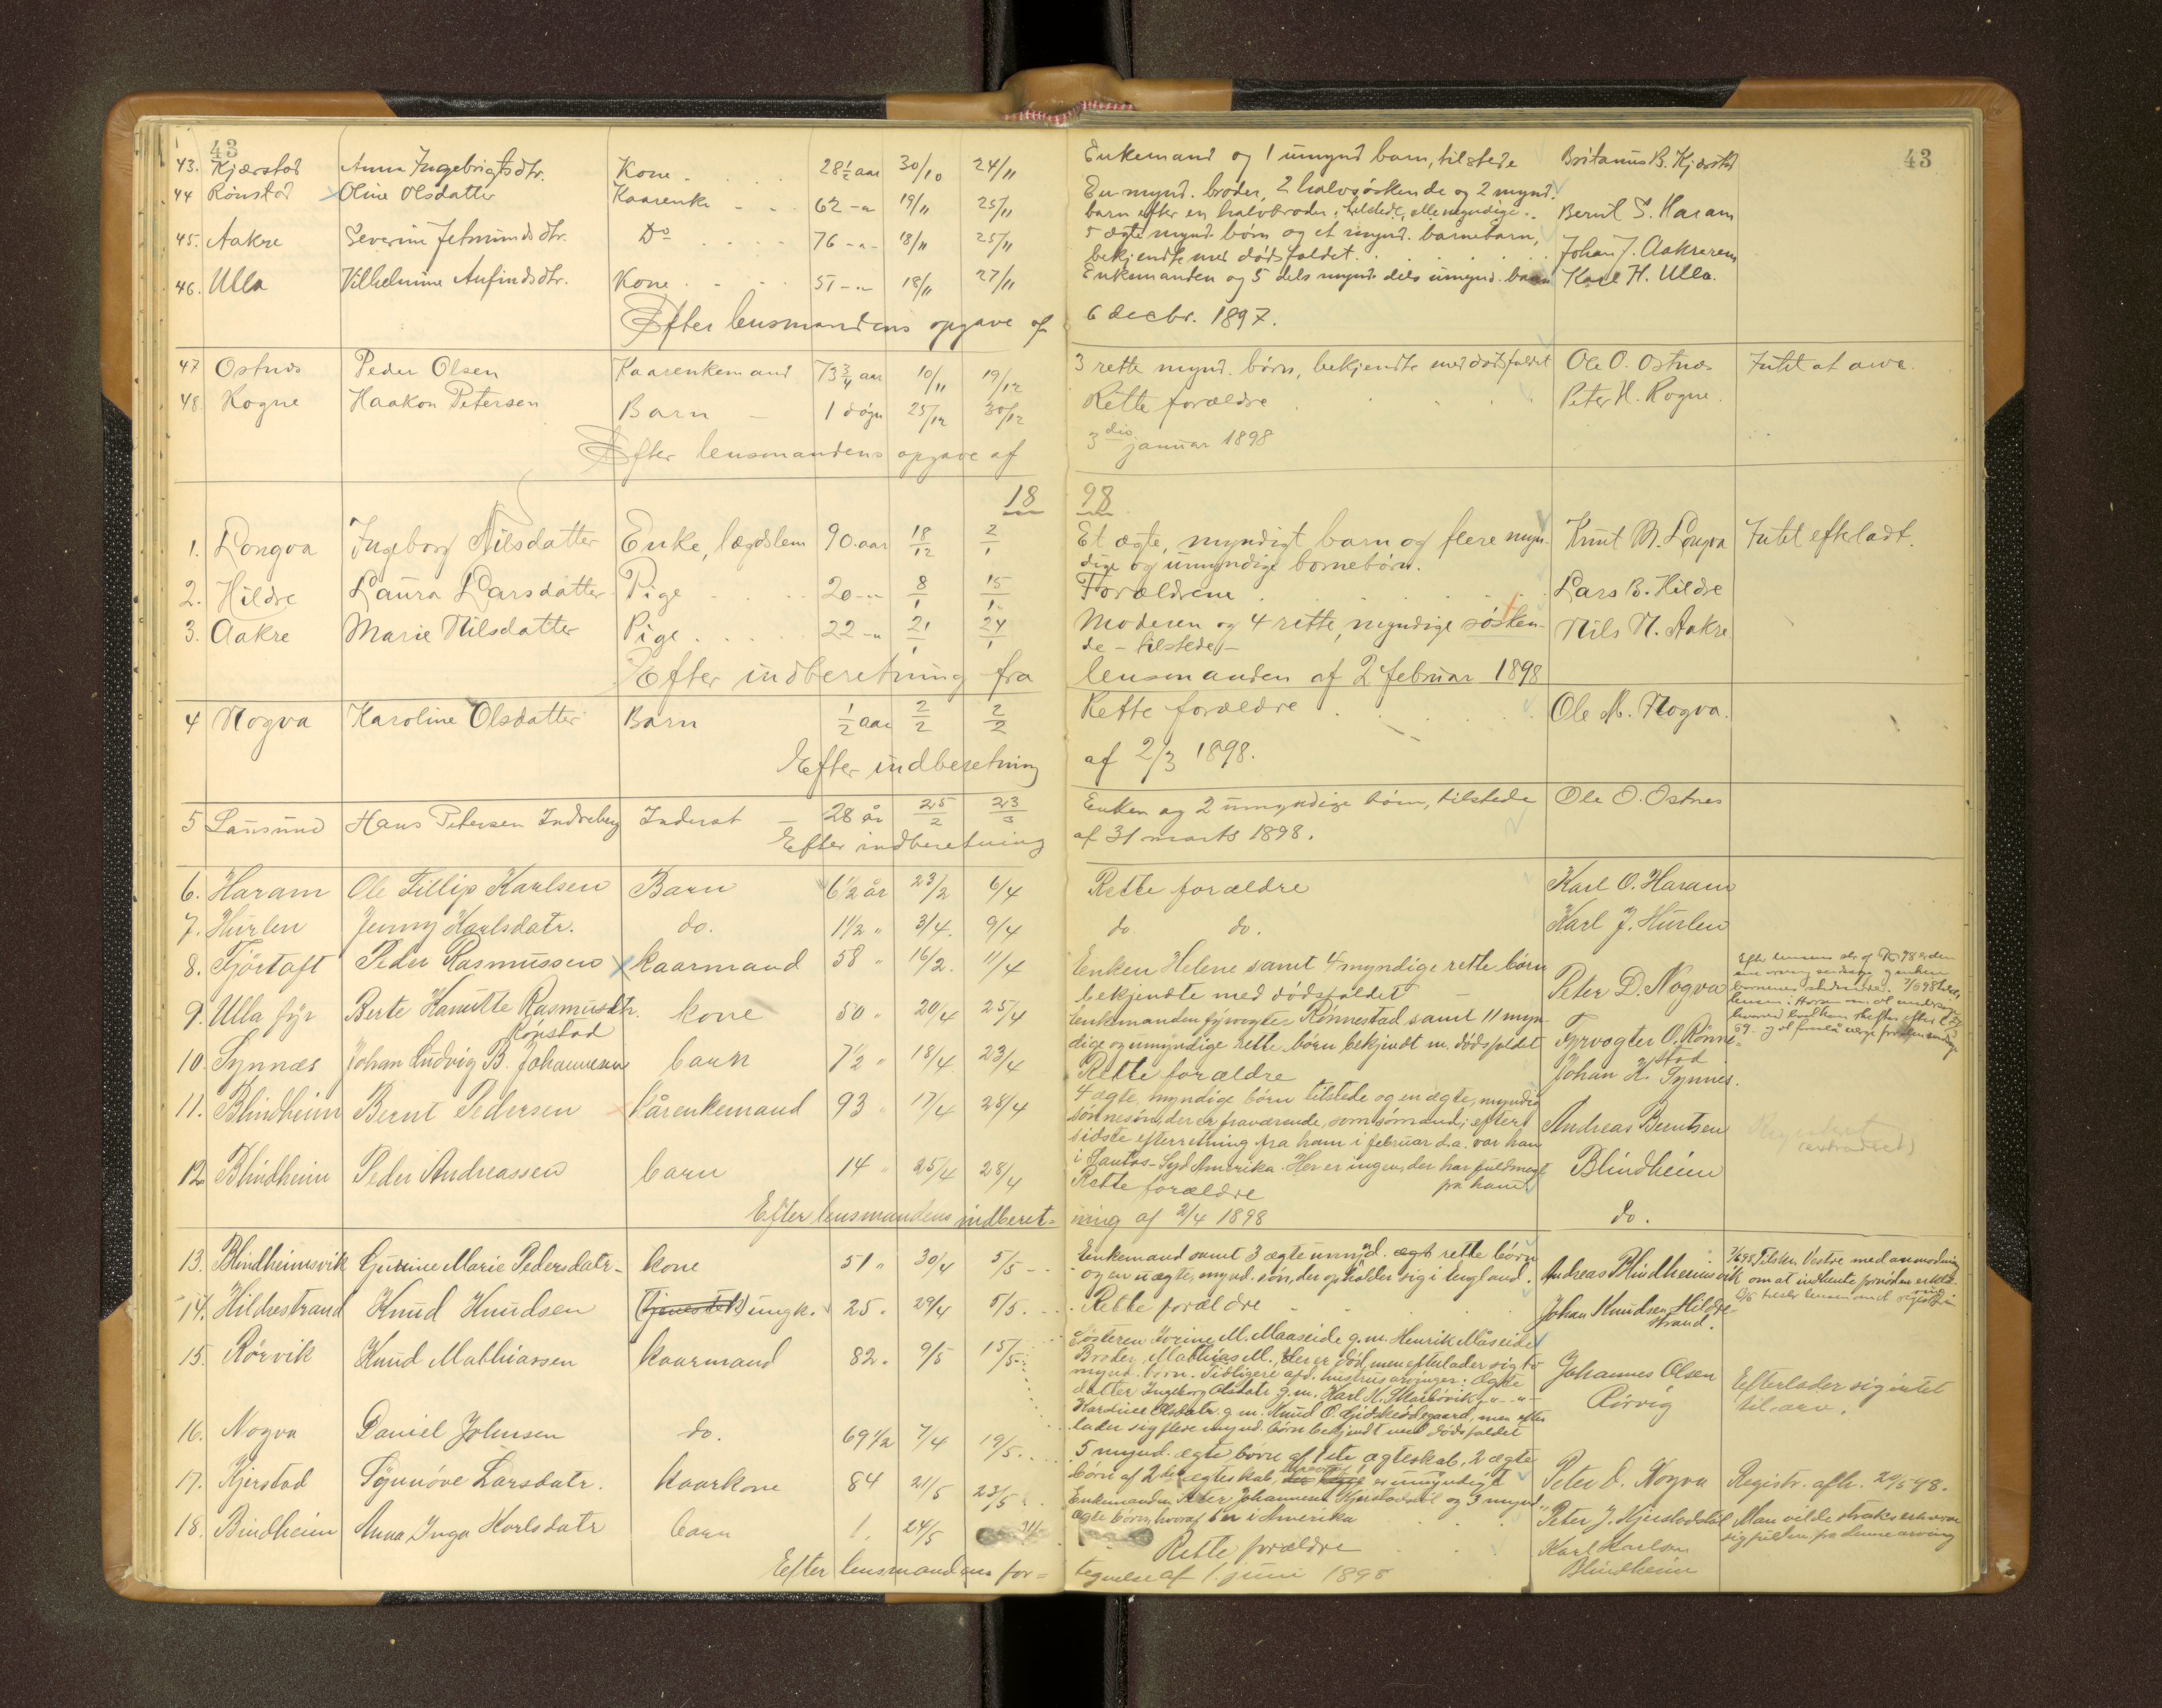 43
43
43. Kjærstad Anna Ingebrigtsdtr. Kone 28 1/2 aar 30/10 24/11 Enkemand og 1 umynd barn, tilstede Britanus B. Kjærstad
44 Rönstad Oline Olsdatter Kaarenke 62 -"- 19/11 25/11 En mynd. broder, 2 halvsöskende og 2 mynd.
barn efter en halvbroder, tilstede, alle myndige. Bernt S. Haram
45. Aakre Severine Jetmundsdtr. Do 76 -"- 18/11 25/11 5 ægte mynd. börn og et mynd. barnebarn,
bekjendte med dödsfaldet. Johan J. Aakrerem
46. Ulla Vilhelmine Anfindsdtr. Kone 51 -"- 18/11 27/11 Enkemanden og 5 dels mynd. dels umynd. barn Karl H. Ulla.
Efter lensmandens opgave af 6 decbr. 1897.
47 Ostnæs Peder Olsen Kaarenkemand 73 3/4 aar 10/11 19/12 3 rette mynd. börn, bekjendte med dödsfaldet Ole O. Ostnæs Intet at arve.
48. Rogne Haakon Petersen Barn 1 dögn 25/12 30/12 Rette forældre Peter H. Rogne.
Efter lensmandens opgave af 3die januar 1898
18 98
1. Longva Ingeborg Nilsdatter Enke, lægdslem 90. aar 18/12 2/1 Et ægte, myndigt barn og flere myn- Knut M. Longva Intet efterladt.
dige og umyndige börnebörn.
2. Hildre Laura Larsdatter Pige 20 -"- 8/1 15/1 Forældrene Lars B. Hildre
3. Aakre Marie Nilsdatter Pige 22 -"- 21/1 24/1 Moderen og 4 rette, myndige sösken- Nils N. Aakre
de - tilstede -
Efter indberetning fra lensmanden af 2 februar 1898
4 Nogva Karoline Olsdatter Barn 1/2 aar 2/2 2/2 Rette forældre Ole M. Nogva.
Efter indberetning af 2/3 1898.
5 Lausund Hans Petersen Indreberg Inderst 28 år 25/2 23/3 Enken og 2 umyndige börn, tilstede Ole O. Ostnes
Efter indberetning af 31 marts 1898.
6. Haram Ole Fillip Karlsen Barn 6 1/2 år 23/2 6/4 Rette forældre Karl O. Haram
7. Hurlen Jenny Karlsdatr. do. 1 1/2 " 3/4. 9/4 do. do. Karl J. Hurlen
8. Fjörtoft Peder Rasmussen kaarmand 58 " 16/2. 11/4 Enken Helene samt 4 myndige rette börn
bekjendte med dödsfaldet Peter D. Nogva
9. Ulla fyr Berte Hanutte Rasmusdtr. Rönstad kone 50 " 20/4 25/4 Enkemanden fyrvogter Rönnestad samt 11 myn-
dige og umyndige rette börn bekjendt m. dödsfaldet Fyrvogter O. Rönne-
stad
10. Synnæs Johan Ludvig B. Johannesen barn 7 1/2 " 18/4 23/4 Rette forældre Johan K. Synnes.
11. Blindheim Bernt Pedersen kårenkemand 93 " 17/4 28/4 4 ægte, myndige börn tilstede og en ægte, myndig
sönnesön, der er fraværende, som sömand; efter
sidste efterretning fra ham i februar d.a. var han Andreas Berntsen
i Santos - Syd Amerika. Her er ingen, der har fuldmagt
på ham Blindheim
12. Blindheim Peder Andreassen barn 14 " 25/4 28/4 Rette forældre do.
Efter lensmandens indberet- ning af 2/4 1898
13. Blindheimsvik Gurine Marie Pedersdatr. kone 51 " 30/4 5/5 Enkemand samt 3 ægte umynd. ægt rette börn
og en uægte, mynd. sön, der opholder sig i England. Andreas Blindheimsvik Tilskr. Vestre med anmodning
om at indhente
14. Hildrestrand Knud Knudsen (tjenestek.) ungk. 25. 29/4 5/5. Rette forældre Johan Knudsen Hildre-
strand.
15. Rörvik Knud Mathiassen kaarmand 82. 9/5 15/5 Sösteren Jorine M. Maaseide g. m. Henrik Måseide
Broder, Mathias M., der er död, men efterlader sig to
mynd. börn. Tidligere afd. hustrus arvinger: Ægte Johannes Olsen Efterlader sig intet
datter Ingeborg Olsdatr. g. m. Karl K. Skarbövik, -"- -"- Rörvig til arv.
Karoline Olsdatr. g. m. Knud O. Gidskeödegaard, men efter
lader sig flere mynd. börn bekjendt med dödsfaldet
16. Nogva Daniel Johnsen do. 69 1/2 7/4 19/5 5 mynd. ægte börn af 1ste ægteskab, 2 ægte
börn af 2det ægteskab, hvoraf 1 er umyndigt Peter D. Nogva Registr. afh. 24/5 98.
17. Kjerstad Synnöve Larsdatr. kaarkone 84 21/5 23/5 Enkemanden Peter Johannesen Kjerstadstöl og 3 mynd.
ægte börn, hvoraf 1 er i Amerika Peter J. Kjerstadstöl Man vilde straks erhverve
sig fuldm. fra denne arving
18. Blindheim Anna Inga Karlsdatr barn 1. 24/5 Rette forældre Karl Karlsen
Blindheim
Efter lensmandens for- tegnelse af 1. juni 1898